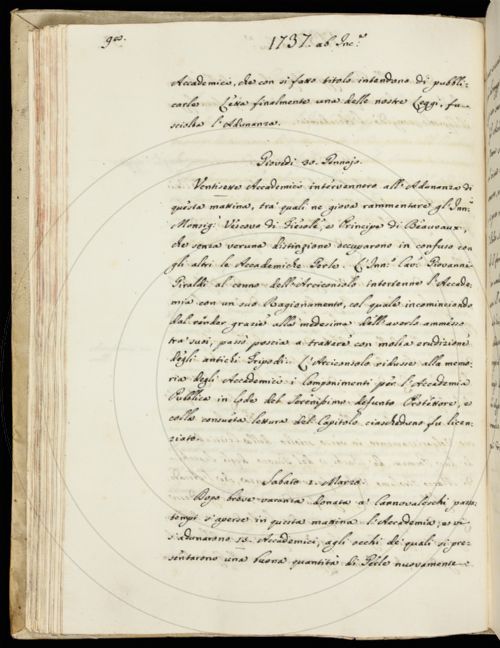 90.
1737. ab Inc.e
Accademico, che con sì fatto titolo intendono di pubbli-
carle. Letta finalmente una delle nostre Leggi, fu
sciolta l'Adunanza.
Giovedì 30. Gennajo.
Ventisette Accademici intervennero all'Adunanza di
questa mattina, tra' quali ne giova rammentare gl'Inn.
Monsig. Vescovo di Fiesole, e Principe di Beauvaux,
che senza veruna distinzione occuparono in confuso con
gli altri le Accademiche Gerle. L'Inn. Cav. Giovanni
Giraldi al cenno dell'Arciconsolo intertenne l'Accade-
mia con un suo Ragionamento, col quale incominciando
dal render grazie alla medesima dell'averlo ammesso
tra' suoi, passò poscia a trattare con molta erudizione
degli antichi Tripodi. L'Arciconsolo ridusse alla memo-
ria degli Accademici i Componimenti per l'Accademia
Pubblica in lode del Serenissimo defunto Protettore, e
colla consueta lettura del Capitolo ciascheduno fu licen-
ziato.
Sabato 1. Marzo.
Dopo breve vacanza donata a' Carnovaleschi passa-
tempi s'aperse in questa mattina l'Accademia, e vi
s'adunarono 13. Accademici, agli occhi de' quali si pre-
sentarono una buona quantità di Gerle nuovamente